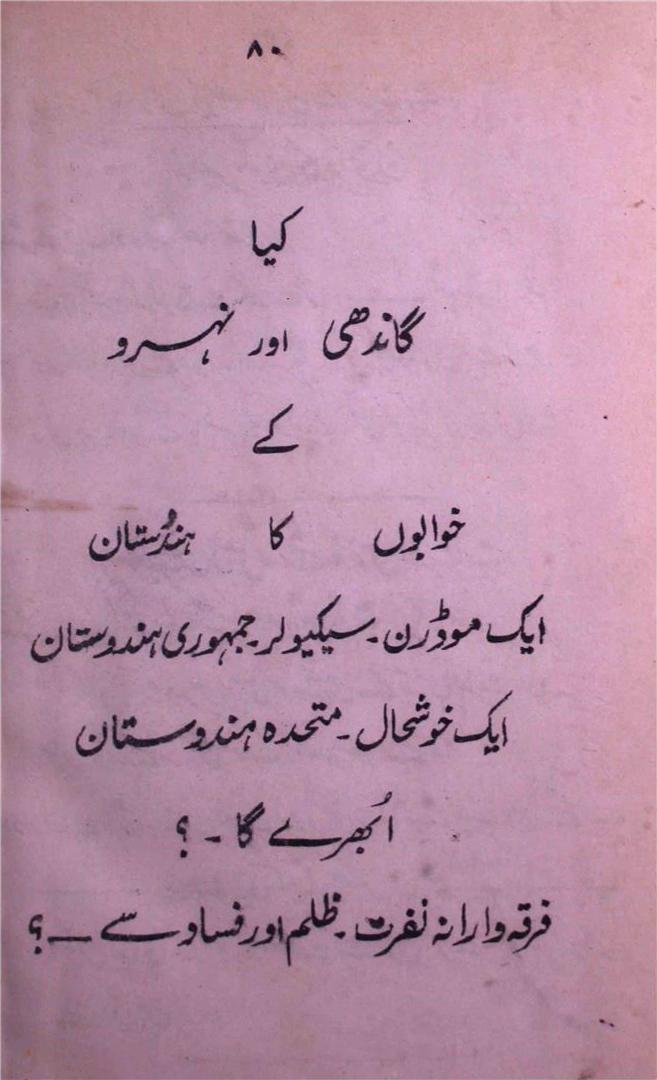 ۸۰
کیا
گاندھی اور نہرو
کے
خوابوں کا ہندُستان
ایک موڈرن۔ سیکیولر۔ جمہوری ہندوستان
ایک خوشحال۔ متحدہ ہندوستان
اُبھرے گا۔ ؟
فرقہ وارانہ نفرت۔ ظلم اور فساد سے ــ ؟